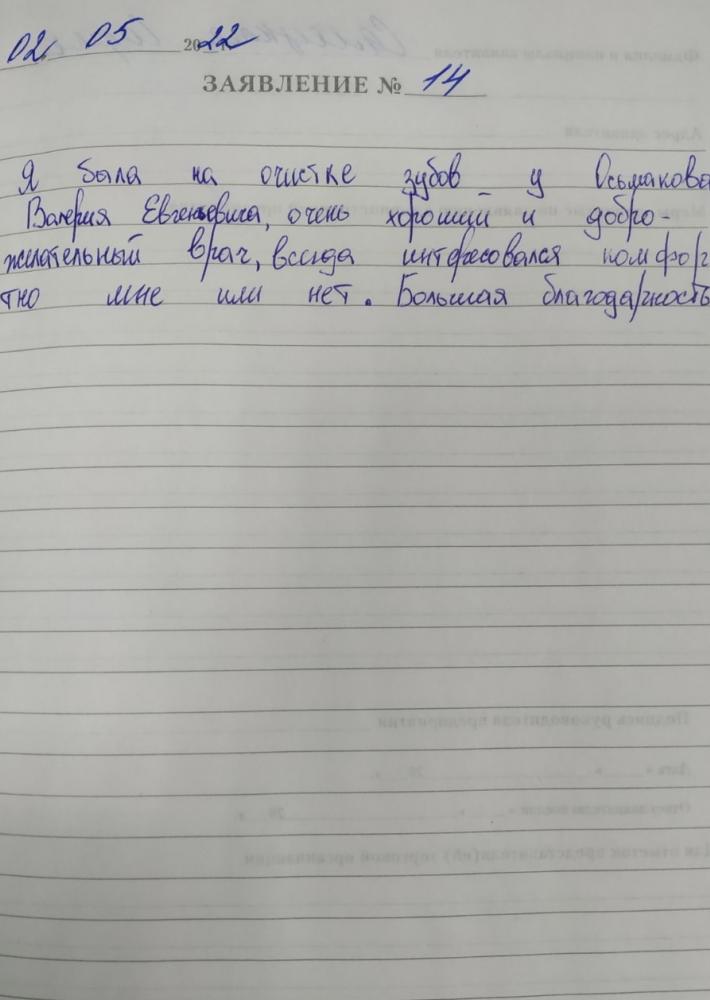 02 05 2022
ЗАЯВЛЕНИЕ № 14
Я была на очистке зубов у Осьмакова
Валерия Евгеньевича, очень хороший и добро-
желательный врач, всегда интересовался комфор
тно мне или нет. Большая благодарность